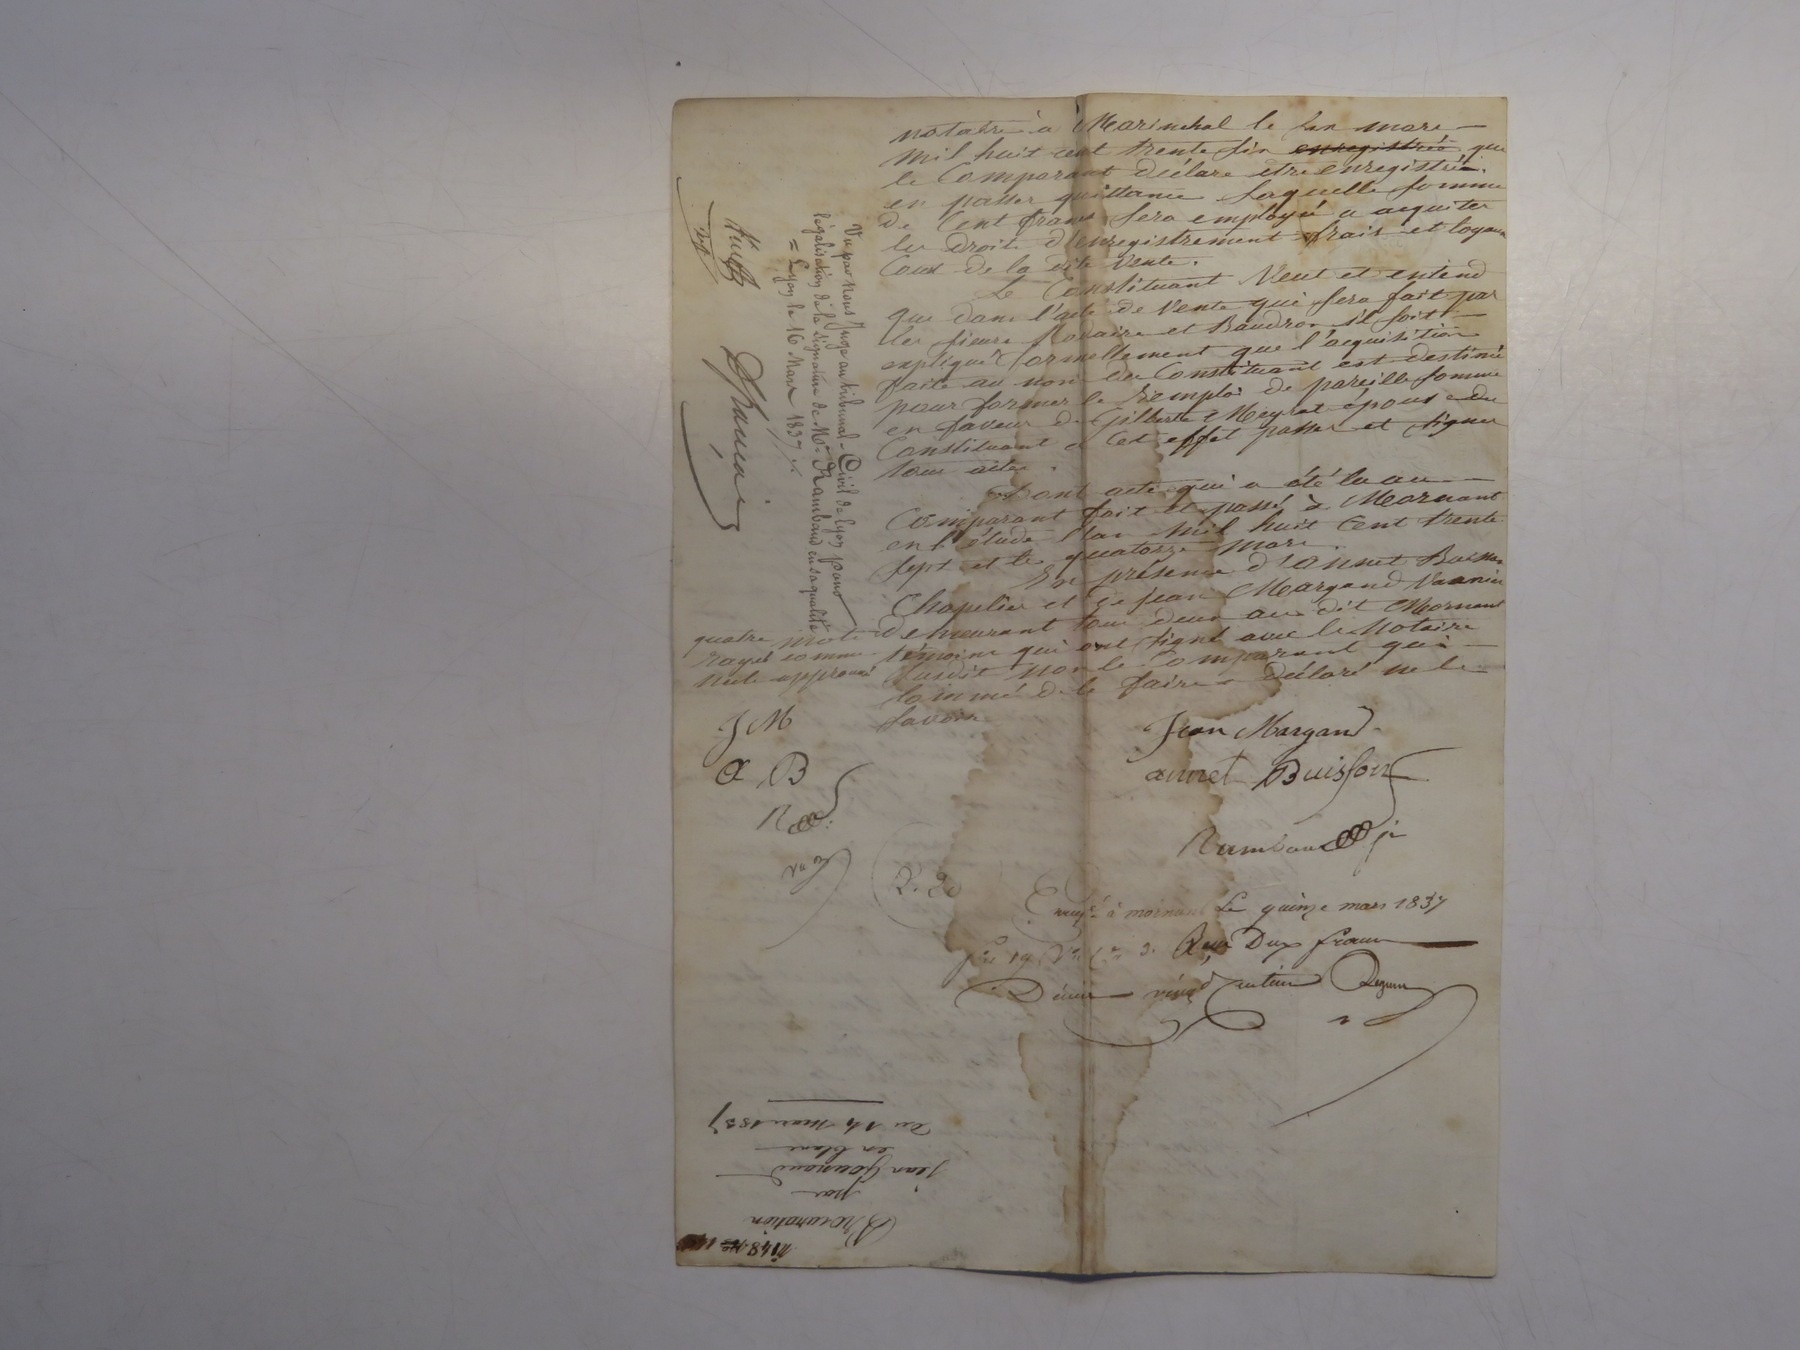 notaire à Marinchal le six mars
mil huit cent trente six enregistrée que
le Comparant déclare être enregistrée.
en passer quittance laquelle somme
de Cent francs sera employée a acquiter
les droits d'enregistrement frais et loyaux
Couts de la dite Vente.
Le Constituant Veut et entend
que dans l'acte de Vente qui sera fait par
les sieurs Rodaire et Baudron il soit
expliqué formellement que l'acquisition
faite au nom du Constituant est destinée
pour former le Remploi de pareille somme
en faveur de Gilberte Meyrat épouse du
Constituant a Cet effet passer et signer
tous actes.
Dont acte qui a été lu au
Comparant fait et passé à Mornant
en l'étude l'an mil huit Cent trente
sept et le quatorze Mars.
En présence d'annet Buisson
Chapelier et de jean Margand Vannier
Demeurant tous deux au dit Mornant
témoins qui ont signé avec le Notaire
susdit non le Comparant qui
sommé de le faire a déclaré ne le
savoir
quatre mots
rayés comme
nuls approuvé
J M
a B
Jean Margand
annet Buisson
Rambaud jn
2. 20
Enregé à mornant Le quinze mars 1837
fo 19 Vo Ce 3. Reçu Deux francs
Décime vingt centimes
Vu par nous Juge au tribunal Civil de Lyon pour
légalisation de la signature de Me Rambaud en sa qualité
= Lyon le 16 Mars 1837
Procuration
par
jean
en blanc
du 14 mars 1837